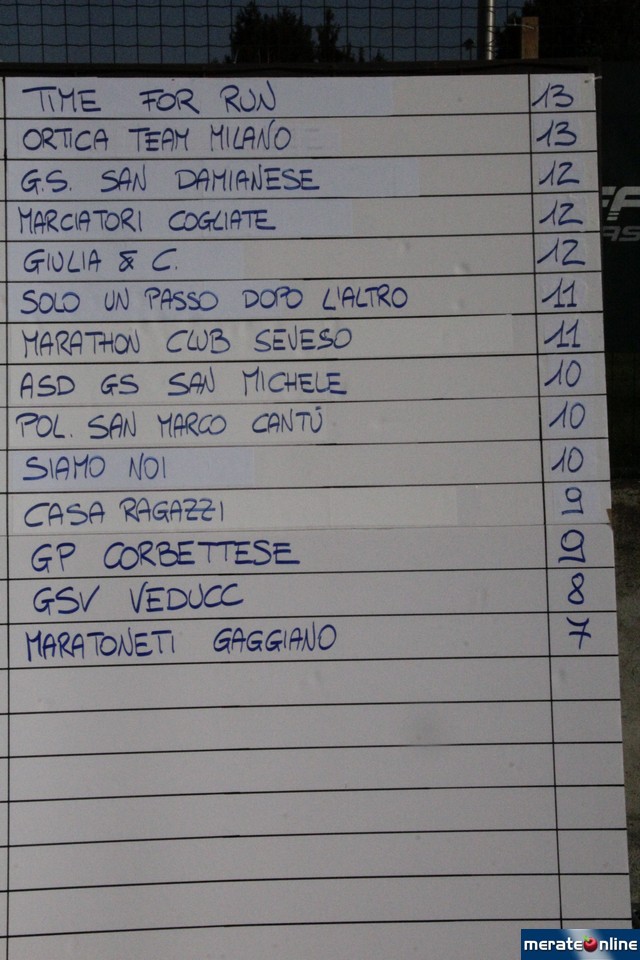 TIME FOR RUN 13
ORTICA TEAM MILANO 13
G.S. SAN DAMIANESE 12
MARCIATORI COGLIATE 12
GIULIA & C. 12
SOLO UN PASSO DOPO L'ALTRO 11
MARATHON CLUB SEVESO 11
ASD GS SAN MICHELE 10
POL. SAN MARCO CANTÚ 10
SIAMO NOI 10
CASA RAGAZZI 9
GP CORBETTESE 9
GSV VEDUCC 8
MARATONETI GAGGIANO 7
merateonline